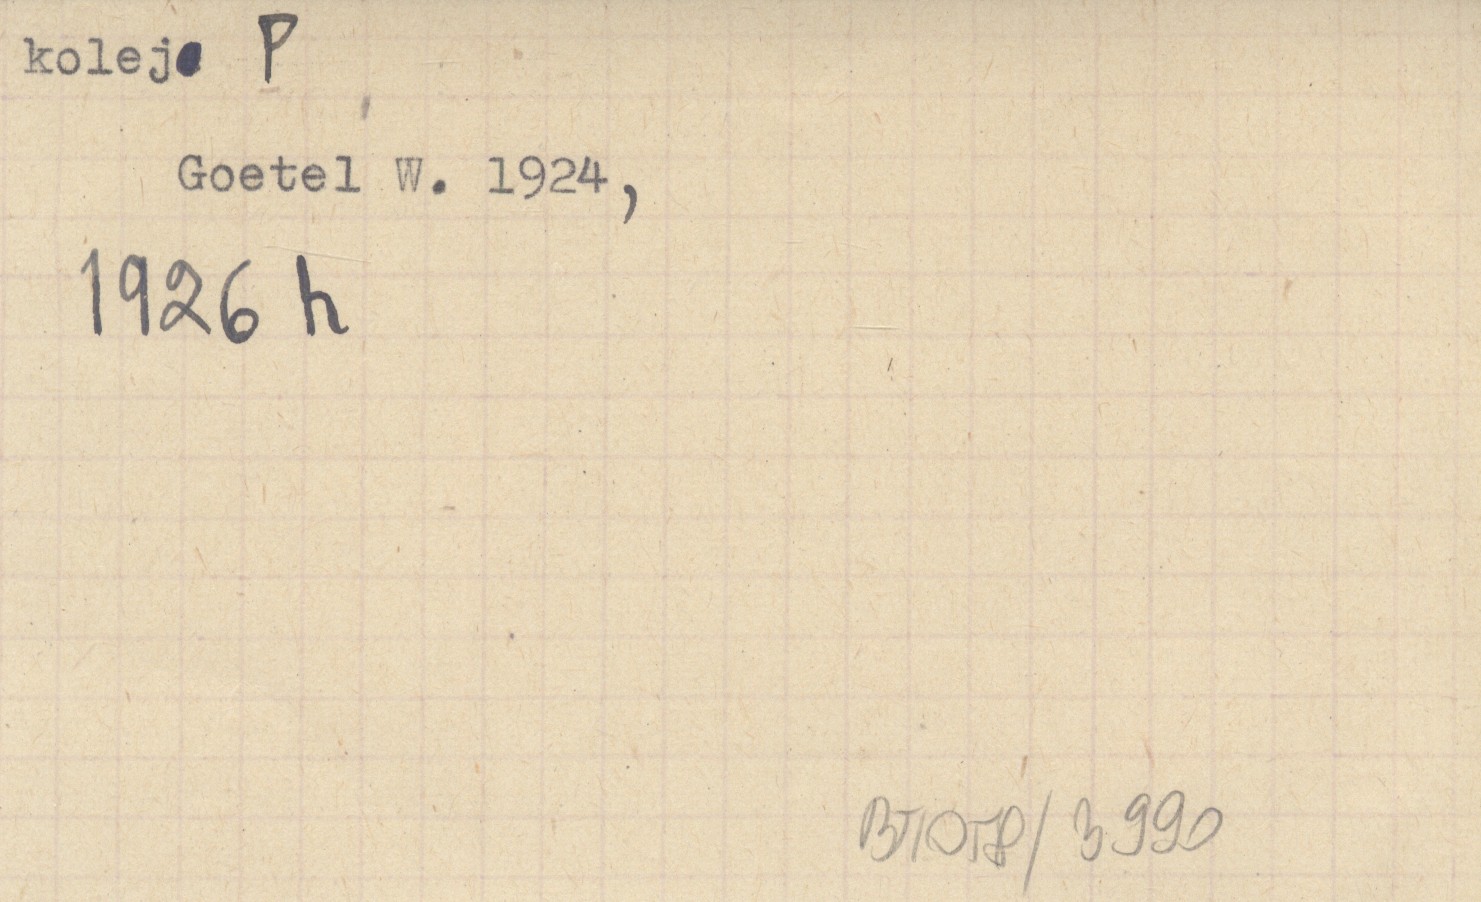 kolej P
Goetel W. 1924,
1926 h
BT/OTP/3990